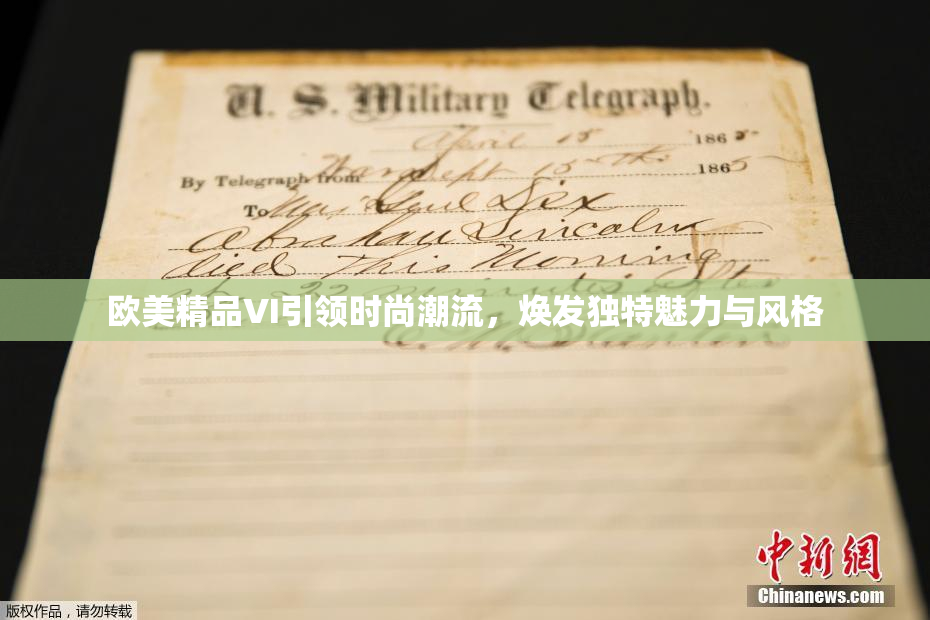 U. S. Military Telegraph.
April 15 1865
By Telegraph from War Dept 15th 1865
To Maj Genl Dix
Abraham Lincoln
died This Morning
at 22 minutes after
欧美精品VI引领时尚潮流，焕发独特魅力与风格
中新网
Chinanews.com
版权作品，请勿转载